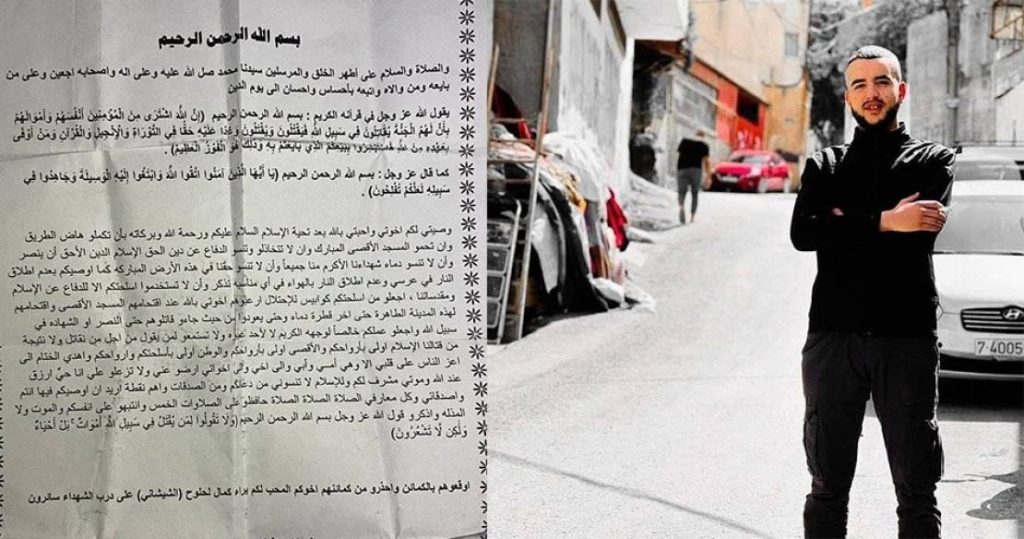 بسم الله الرحمن الرحيم
والصلاة والسلام على أطهر الخلق والمرسلين سيدنا محمد صل الله عليه وعلى اله واصحابه اجعين وعلى من
بايعه ومن والاه واتبعه بأحساس واحسان الى يوم الدين
يقول الله عز وجل في قرآنه الكريم : بسم الله الرحمن الرحيم (إِنَّ اللَّهَ اشْتَرَى مِنَ الْمُؤْمِنِينَ أَنْفُسَهُمْ وَأَمْوَالَهُمْ
بِأَنَّ لَهُمُ الْجَنَّةَ يُقَاتِلُونَ فِي سَبِيلِ اللَّهِ فَيَقْتُلُونَ وَيُقْتَلُونَ وَعْدًا عَلَيْهِ حَقًّا فِي التَّوْرَاةِ وَالْإِنْجِيلِ وَالْقُرْآنِ وَمَنْ أَوْفَى
بِعَهْدِهِ مِنَ اللَّهِ فَاسْتَبْشِرُوا بِبَيْعِكُمُ الَّذِي بَايَعْتُمْ بِهِ وَذَلِكَ هُوَ الْفَوْزُ الْعَظِيمُ) .
كما قال عز وجل : بسم الله الرحمن الرحيم (يَا أَيُّهَا الَّذِينَ آمَنُوا اتَّقُوا اللَّهَ وَابْتَغُوا إِلَيْهِ الْوَسِيلَةَ وَجَاهِدُوا فِي
سَبِيلِهِ لَعَلَّكُمْ تُفْلِحُونَ) .
وصيتي لكم اخوتي واحبتي بالله بعد تحية الإسلام السلام عليكم ورحمة الله وبركاته بأن تكملو هاض الطريق
وان تحمو المسجد الأقصى المبارك وان لا تتخاذلو وتنسو الدفاع عن دين الحق الإسلام الدين الأحق أن ينصر
وأن لا تنسو دماء شهداءنا الأكرم منا جميعاً وأن لا تنسو حقنا في هذه الأرض المباركه كما اوصيكم بعدم اطلاق
النار في عرسي وعدم اطلاق النار بالهواء في أي مناسبه تذكر وأن لا تستخدموا اسلحتكم الا للدفاع عن الإسلام
ومقدساتنا ، اجعلو من اسلحتكم كوابيس للإحتلال ارعبوهم اخوتي بالله عند اقتحامهم المسجد الأقصى واقتحامهم
لهذه المدينة الطاهرة حتى اخر قطرة دماء وحتى يعودوا من حيث جاءو قاتلوهم حتى النصر او الشهاده في
سبيل الله واجعلو عملكم خالصاً لوجهه الكريم لا لأحد غيره ولا تستمعو لمن يقول من اجل من نقاتل ولا نتيجة
من قتالنا الإسلام اولى بأرواحكم والأقصى اولى بأرواحكم والوطن اولى بأسلحتكم وارواحكم واهدي الختام الى
اعز الناس على قلبي الا وهي أمي وأبي والى اخي والى اخواتي ارضو عني ولا تزعلو علي انا حيٌ ارزق
عند الله وموتي مشرف لكم وللإسلام لا تنسوني من دعائكم ومن الصدقات واهم نقطة أريد ان اوصيكم فيها انتم
واصدقائي وكل معارفي الصلاة الصلاة الصلاة حافظو على الصلاوات الخمس وانتبهو على انفسكم والموت ولا
المذله واذكرو قول الله عز وجل بسم الله الرحمن الرحيم (وَلَا تَقُولُوا لِمَن يُقْتَلُ فِي سَبِيلِ اللَّهِ أَمْوَاتٌ ۚ بَلْ أَحْيَاءٌ
وَلَٰكِن لَّا تَشْعُرُونَ)
اوقعوهم بالكمائن واحذرو من كمائنهم اخوكم المحب لكم براء كمال لحلوح (الشيشاني) على درب الشهداء سائرون
7-4005